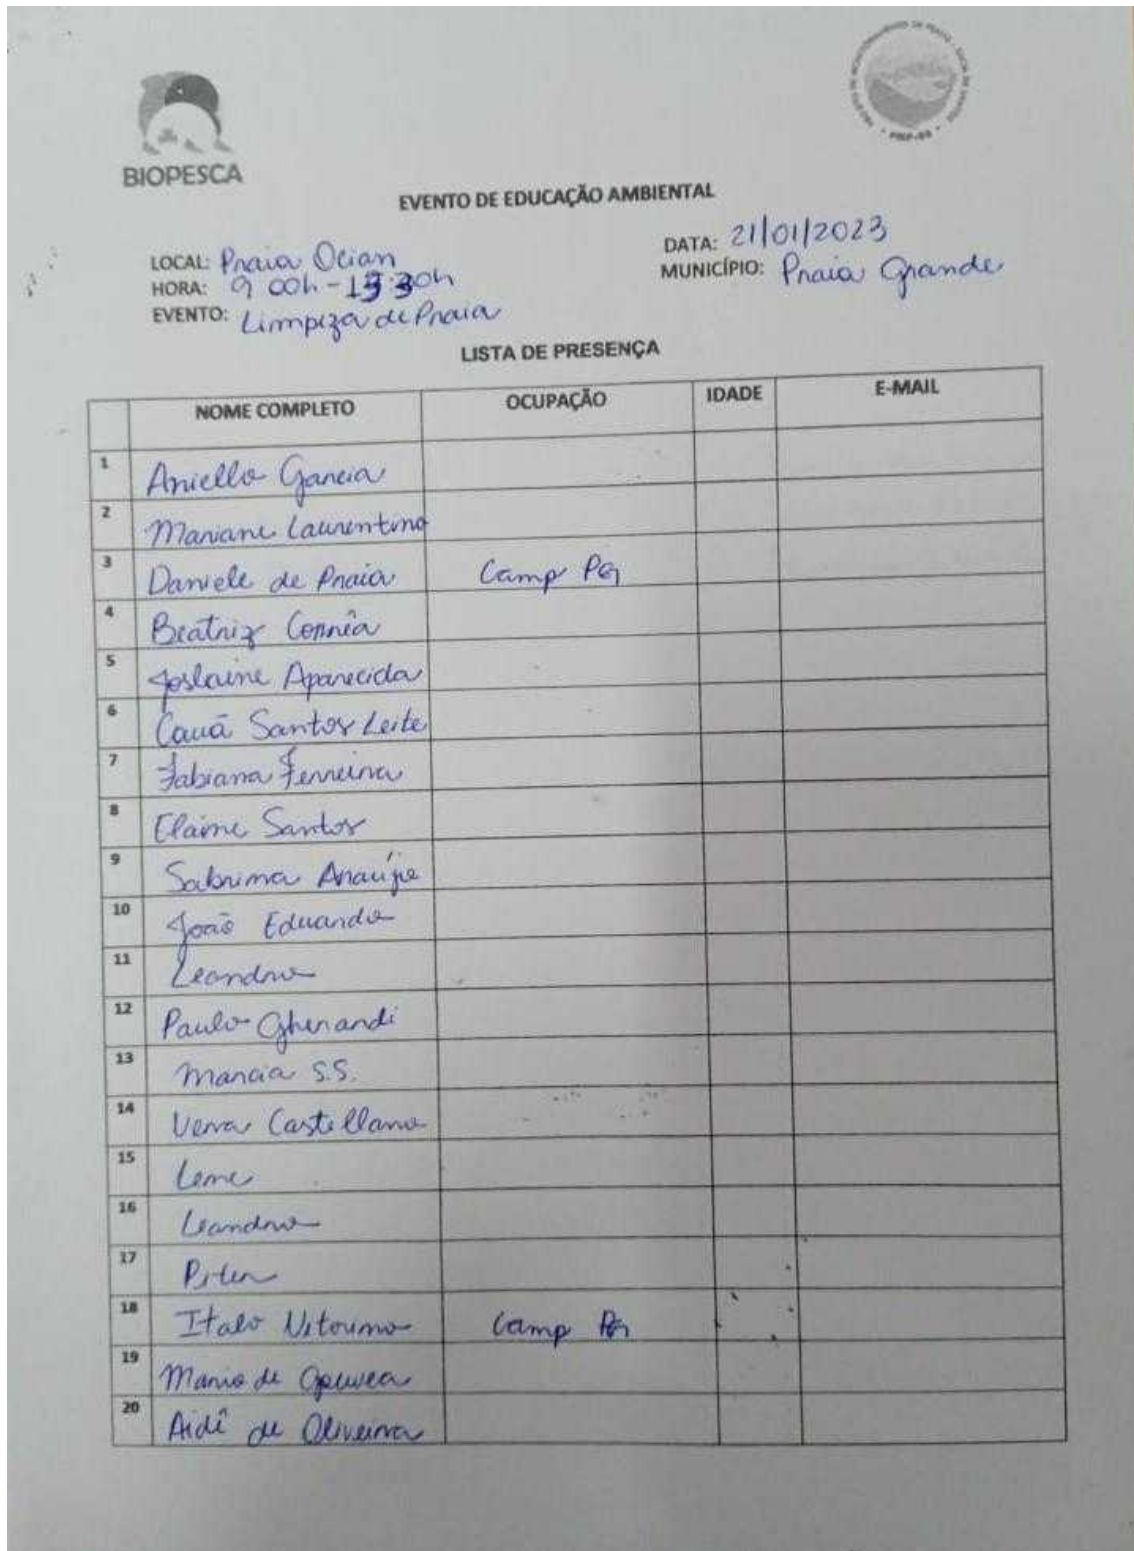 BIOPESCA
PMP-BS
EVENTO DE EDUCAÇÃO AMBIENTAL
LOCAL: Praia Ocian
DATA: 21/01/2023
HORA: 9 00h - 13 30h
MUNICÍPIO: Praia Grande
EVENTO: Limpeza de Praia
LISTA DE PRESENÇA
NOME COMPLETO OCUPAÇÃO IDADE E-MAIL
1 Aniello Garcia
2 Mariane Laurentino
3 Daniele de Praia Camp PG
4 Beatriz Corrêa
5 Joslaine Aparecida
6 Cauã Santos Leite
7 Fabiana Ferreira
8 Elaine Santos
9 Sabrina Araújo
10 João Eduardo
11 Leandro
12 Paulo Gherardi
13 Marcia S.S.
14 Vera Castellano
15 Leme
16 Leandro
17
18 Italo Vitorino Camp PG
19 Mario de
20 Aidê de Oliveira